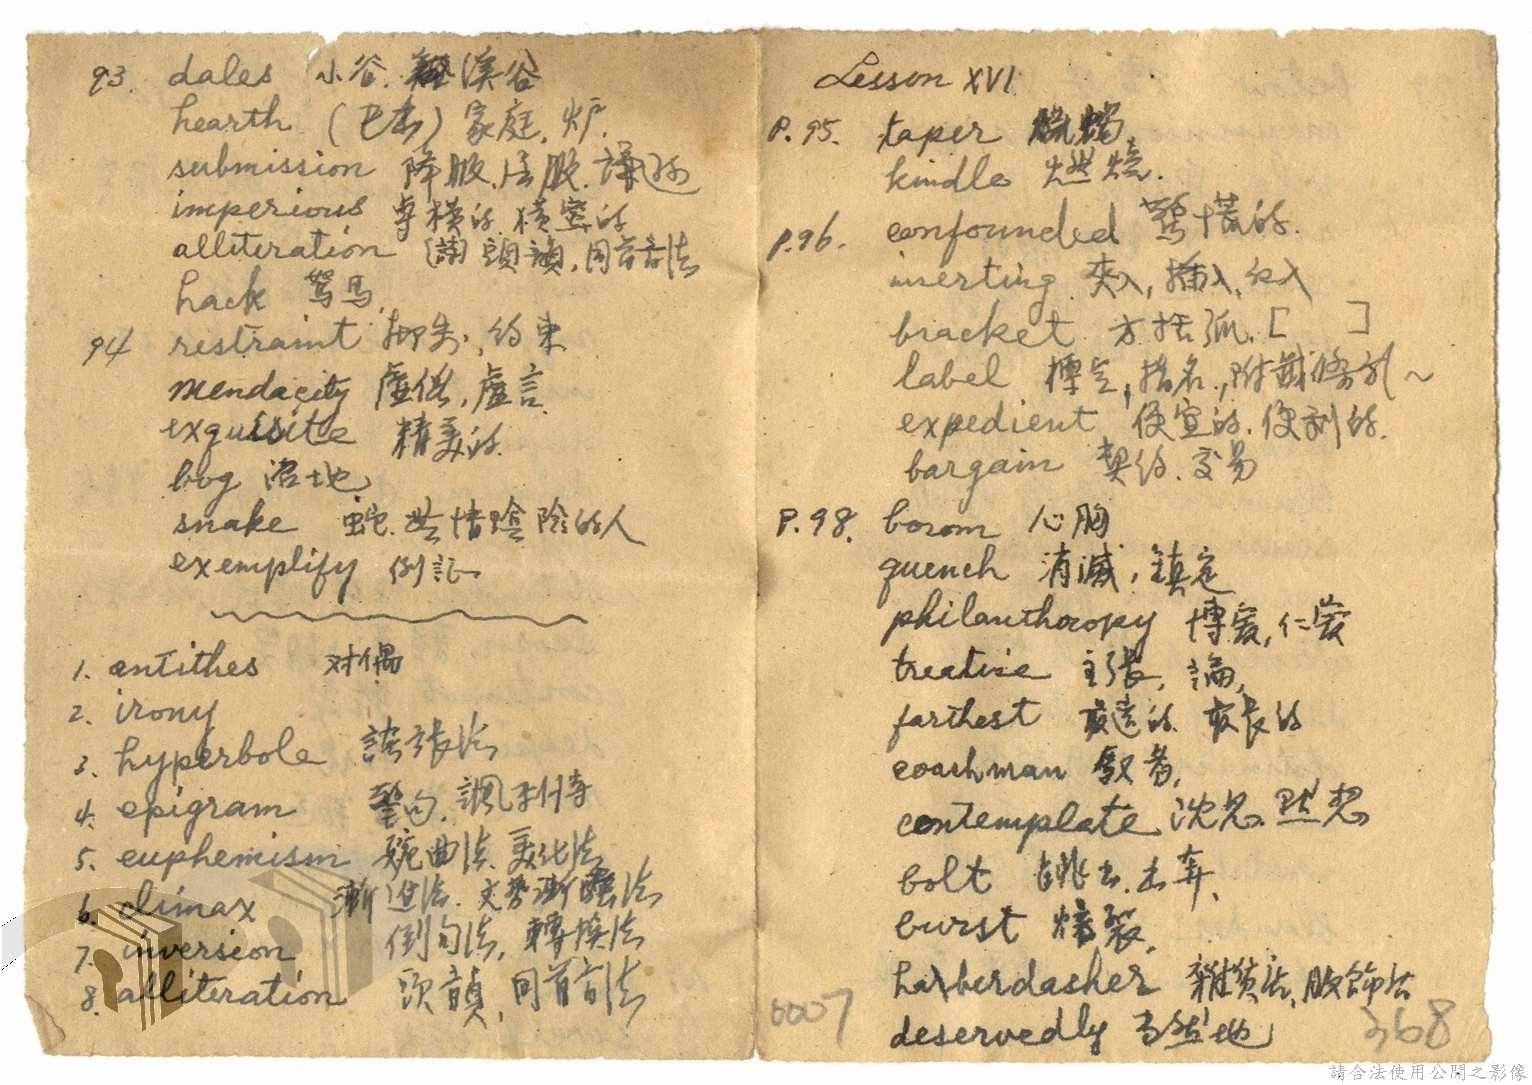 93. dales 小谷. 溪谷
hearth (巴古) 家庭, 炉.
submission 降服, 屈服. 謙遜
imperious 専横的, 横蛮的
alliteration 頭韻, 同首音法
hack 駑馬.
94 restraint 抑制, 约束
mendacity 虛偽, 虛言.
exquisite 精美的.
bog 沼地
snake 蛇. 陰险的人
exemplify 例証
1. antithes 对偶
2. irony
3. hyperbole 誇張法
4. epigram 警句. 諷刺诗
5. euphemism 婉曲法. 美化法
6. climax 漸進法. 文势漸法
7. inversion 倒句法, 轉換法
8. alliteration 頭韻, 同首音法
Lesson XVI
P. 95. taper 蠟燭.
kindle 燃燒.
P. 96. confounded 驚慌的.
inserting 夾入, 插入,
bracket 方括弧. [ ]
label 標, 指名, 附籤條
expedient 便宜的. 便利的.
bargain 契约. 交易
P. 98. bosom 心胸
quench 消滅, 鎮定
philanthoropy 博愛, 仁愛
treatise 主張, 論,
farthest 最遠的 最長的
coachman 馭者,
contemplate 沈思, 默想
bolt 跳出. 出奔.
burst 爆裂,
harberdasher 雜貨店, 服飾店
deservedly 当然地
0007
368
請合法使用公開之影像